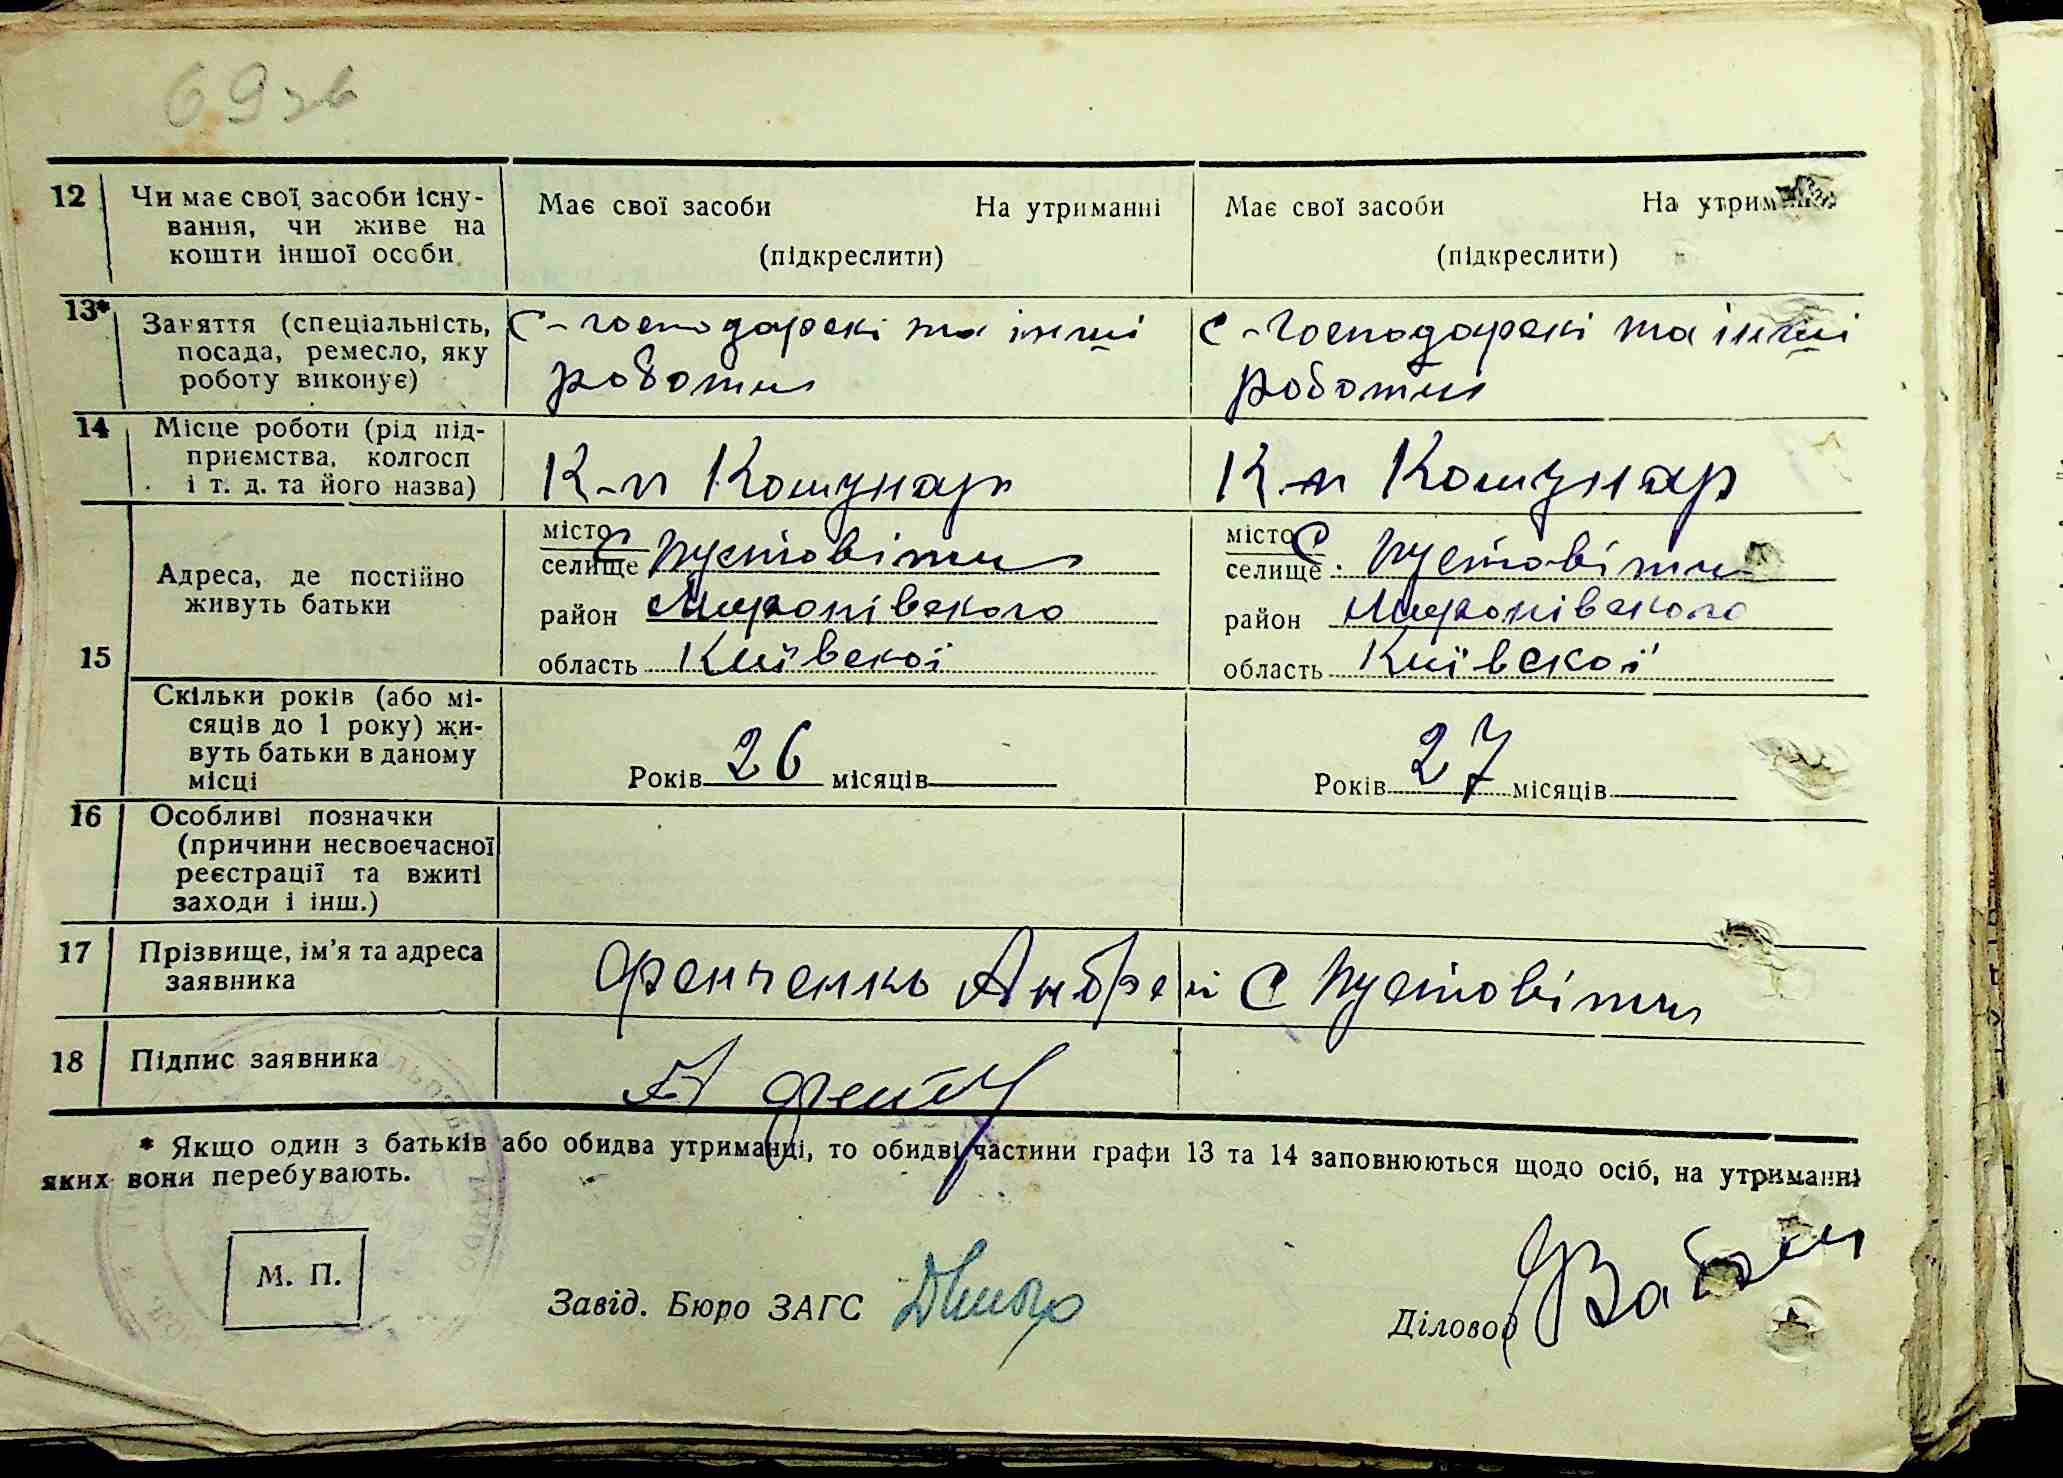 69 зв
12 Чи має свої засоби існу-
вання, чи живе на
кошти іншої особи.
Має свої засоби На утриманні
(підкреслити)
Має свої засоби На утриманні
(підкреслити)
13* Заняття (спеціальність,
посада, ремесло, яку
роботу виконує)
С-господарскі та інші
роботи
С-господарскі та інші
роботи
14 Місце роботи (рід під-
приємства, колгосп
і т. д. та його назва)
К-п Комунар
К-п Комунар
15 Адреса, де постійно
живуть батьки
місто
селище
С Пустовіти
район Миронівского
область Київскої
місто
селище
С. Пустовіти
район Миронівского
область Київскої
Скільки років (або мі-
сяців до 1 року) жи-
вуть батьки в даному
місці
Років 26 місяців
Років 27 місяців
16 Особливі позначки
(причини несвоєчасної
реєстрації та вжиті
заходи і інш.)
17 Прізвище, ім'я та адреса
заявника
Фенченко Андрей С Пустовіти
18 Підпис заявника
* Якщо один з батьків або обидва утриманці, то обидві частини графи 13 та 14 заповнюються щодо осіб, на утриманні
яких вони перебувають.
М. П.
Завід. Бюро ЗАГС
Діловод